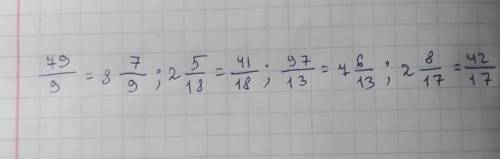 79/9 = 8 7/9 ; 2 5/18 = 41/18 ; 97/13 = 7 6/13 ; 2 8/17 = 42/17